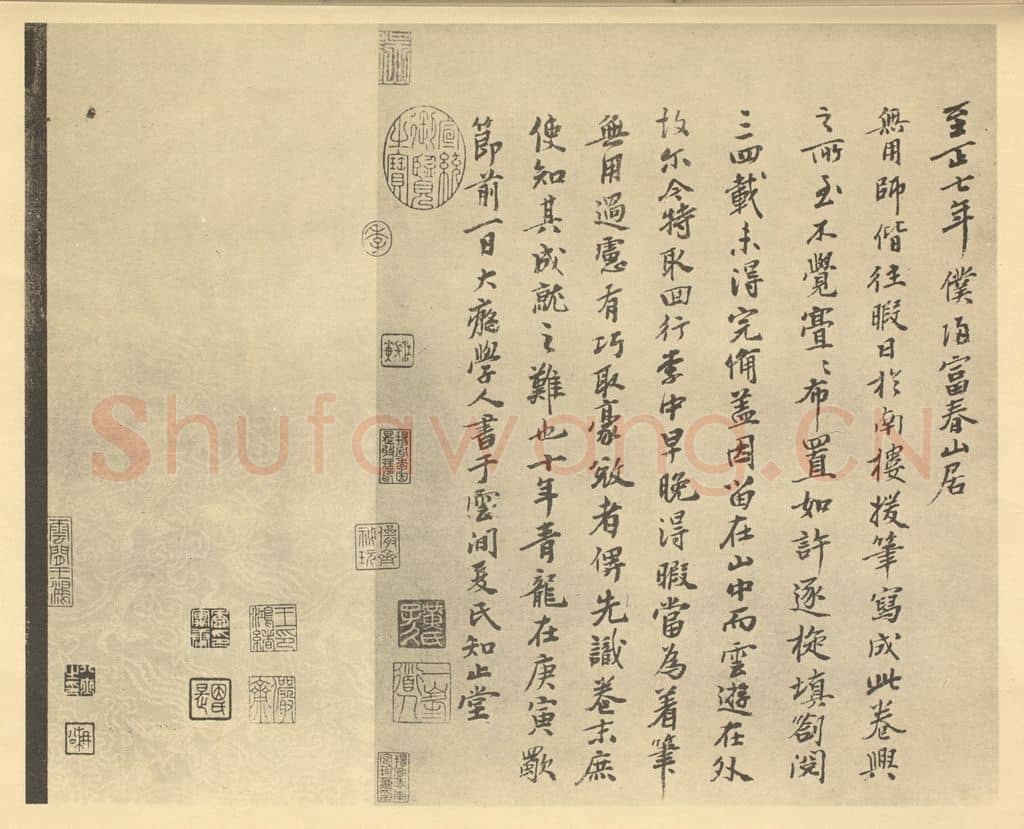 至正七年僕歸富春山居
無用師偕往暇日於南樓援筆寫成此卷興
之所至不覺亹〻布置如許逐旋填劄閱
三四載未得完備蓋因留在山中而雲遊在外
故尔今特取回行李中早晚得暇當為着筆
無用過慮有巧取豪敚者俾先識卷末庶
使知其成就之難也十年青龍在庚寅歜
節前一日大癡學人書于雲間夏氏知止堂
宣統御覽之寶
季
儼齋秘玩
黃氏子久
一峯道人
雲間王鴻
王印鴻緒
儼齋
Shufawang.CN